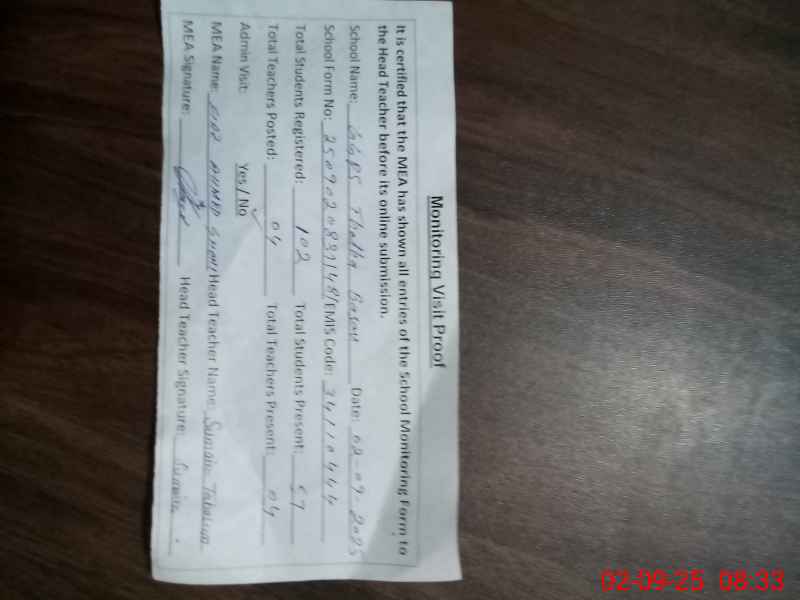 Monitoring Visit Proof
It is certified that the MEA has shown all entries of the School Monitoring Form to
the Head Teacher before its online submission.
School Name: GGPS Date: 02-09-2025
School Form No: EMIS Code: 34110444
Total Students Registered: 102 Total Students Present: 67
Total Teachers Posted: 04 Total Teachers Present: 04
Admin Visit: Yes / No
MEA Name: AHMED Head Teacher Name:
MEA Signature: Head Teacher Signature:
02-09-25 08:33